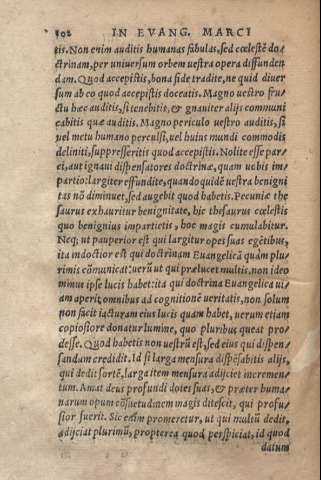 102 IN EVANG. MARCI
tis. Non enim auditis humanas fabulas, sed cœlestē do⸗
ctrinam, per uniuersum orbem uestra opera diffunden
dam. Quod accepistis, bona fide tradite, ne quid diuer
sum ab eo quod accepistis doceatis. Magno uestro fru⸗
ctu hæc auditis, si tenebitis, & gnauiter alijs communi
cabitis quæ auditis. Magno periculo uestro auditis, si
uel metu humano perculsi, uel huius mundi commodis
deliniti, suppresseritis quod accepistis. Nolite esse par⸗
ci, aut ignaui dispensatores doctrinæ, quam uobis im⸗
partio: largiter effundite, quandoquidē uestra benigni
tas nō diminuet, sed augebit quod habetis. Pecuniæ the
saurus exhauritur benignitate, hic thesaurus cœlestis
quo benignius impartietis, hoc magis cumulabitur.
Neq; ut pauperior est qui largitur opes suas egētibus,
ita indoctior est qui doctrinam Euangelicā quàm plu⸗
rimis cōmunicat: uerū ut qui prælucet multis, non ideo
minus ipse lucis habet: ita qui doctrina Euangelica ui⸗
am aperit omnibus ad cognitionē ueritatis, non solum
non facit iacturam eius lucis quam habet, uerum etiam
copiosiore donatur lumine, quo pluribus queat pro⸗
desse. Quod habetis non uestrū est, sed eius qui dispen⸗
sandum credidit. Id si larga mensura dispēsabitis alijs,
qui dedit sortē, larga item mensura adijciet incremen⸗
tum. Amat deus profundi dotes suas, & præter huma⸗
narum opum cōsuetudinem magis ditescit, qui profu⸗
sior fuerit. Sic enim promeretur, ut qui multū dedit,
adijciat plurimū, propterea quod perspiciat, id quod
datum